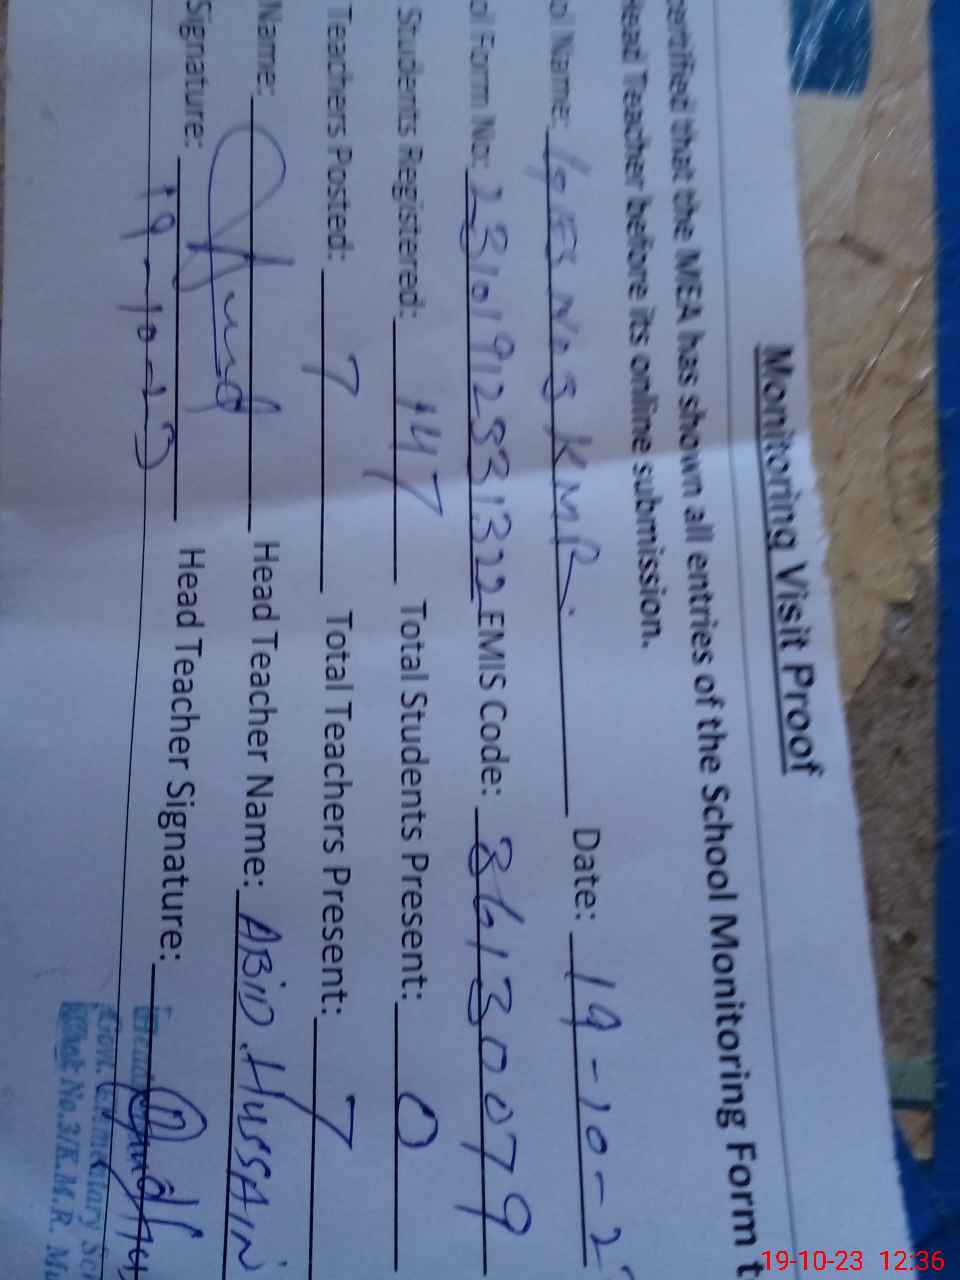 Monitoring Visit Proof
certified that the MEA has shown all entries of the School Monitoring Form t
Head Teacher before its online submission.
ol Name: GES No 3 KMR. Date: 19-10-2
ol Form No: 23101912331322 EMIS Code: 36130079
Students Registered: 147 Total Students Present: 0
Teachers Posted: 7 Total Teachers Present: 7
Name: Head Teacher Name: ABID.HUSSAIN
Signature: Head Teacher Signature:
19-10-23
Head
Govt. Elementary Sch
Chak No.3/K.M.R. Mu
19-10-23 12:36